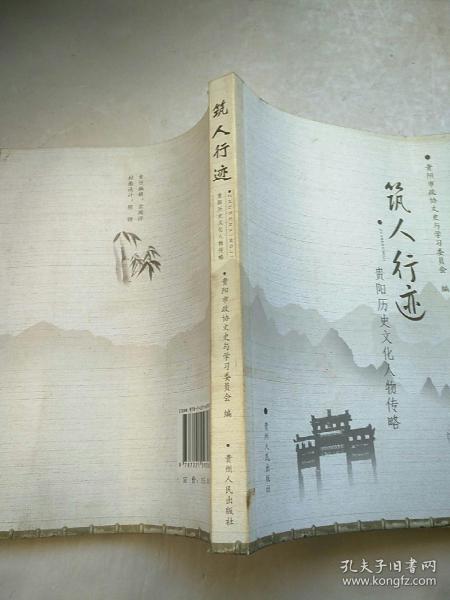 筑人行迹
贵阳历史文化人物传略
贵阳市政协文史与学习委员会 编
贵州人民出版社
筑人行迹
贵阳历史文化人物传略
贵阳市政协文史与学习委员会 编
贵州人民出版社
孔夫子旧书网
www.kongfz.com